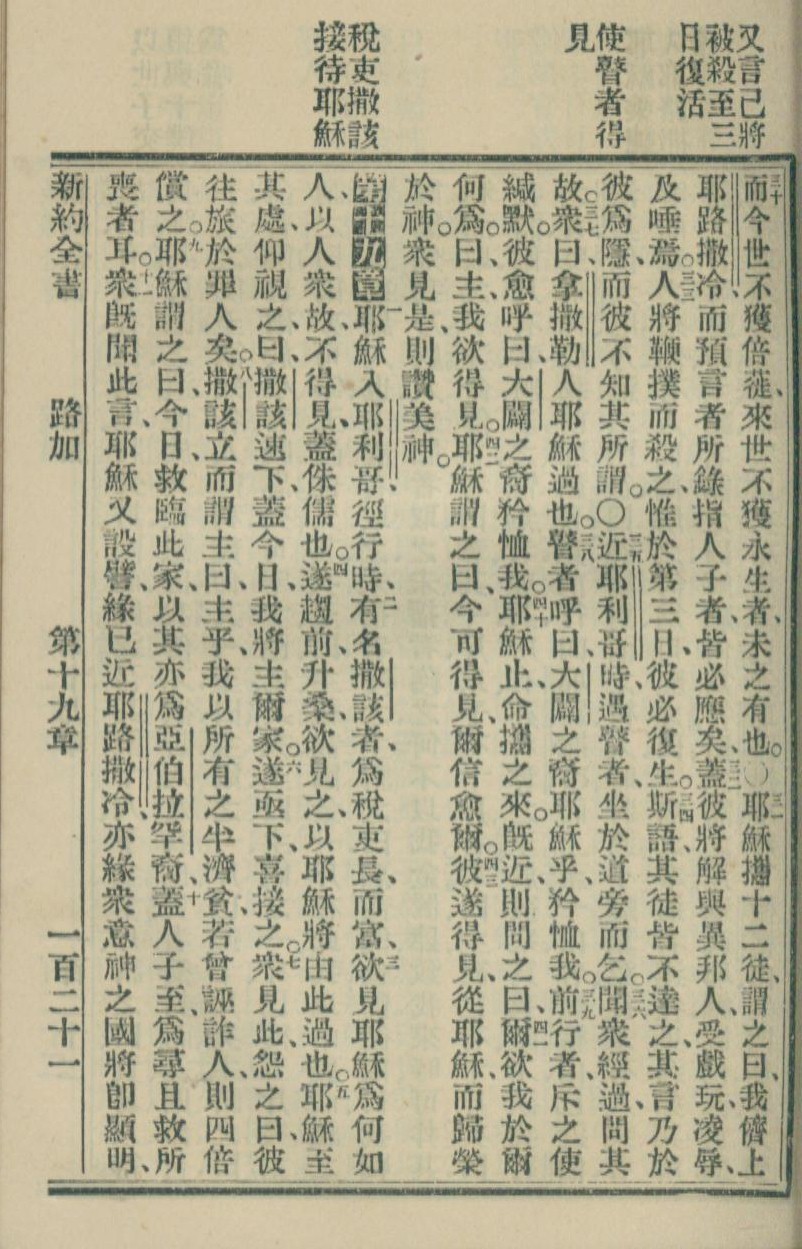 又言己將
被殺至三
日復活
使瞽者得
見
稅吏撒該
接待耶穌
三十而今世不獲倍蓰、來世不獲永生者、未之有也。〇三一耶穌攜十二徒、謂之曰、我儕上
耶路撒冷、而預言者所錄指人子者、皆必應矣、三二蓋彼將解與異邦人、受戲玩、凌辱、
及唾焉。三三人將鞭撲而殺之、惟於第三日、彼必復生。三四斯語其徒皆不達之、其言乃於
彼爲隱、而彼不知其所謂。〇三五近耶利哥時、遇瞽者、坐於道旁而乞。三六聞衆經過、問其
故。三七衆曰、拿撒勒人耶穌過也。三八瞽者呼曰、大闢之裔耶穌乎、矜恤我。三九前行者、斥之使
緘默。彼愈呼曰、大闢之裔矜恤我。四十耶穌止、命攜之來。旣近、則問之曰、四一爾欲我於爾
何爲。曰、主、我欲得見。四二耶穌謂之曰、今可得見、爾信愈爾。四三彼遂得見、從耶穌、而歸榮
於神。衆見是、則讚美神。
第十九章一耶穌入耶利哥、徑行時、二有名撒該者、爲稅吏長、而富、三欲見耶穌爲何如
人、以人衆故、不得見、蓋侏儒也。四遂趨前、升桑、欲見之、以耶穌將由此過也。五耶穌至
其處、仰視之、曰、撒該速下、蓋今日、我將主爾家。六遂亟下、喜接之。七衆見此、怨之曰、彼
往旅於罪人矣。八撒該立而謂主曰、主乎、我以所有之半濟貧、若曾誣詐人、則四倍
償之。九耶穌謂之曰、今日、救臨此家、以其亦爲亞伯拉罕裔、十蓋人子至、爲尋且救所
喪者耳。十一衆旣聞此言、耶穌又設譬、緣已近耶路撒冷、亦緣衆意神之國將卽顯明、
新約全書 路加 第十九章 一百二十一